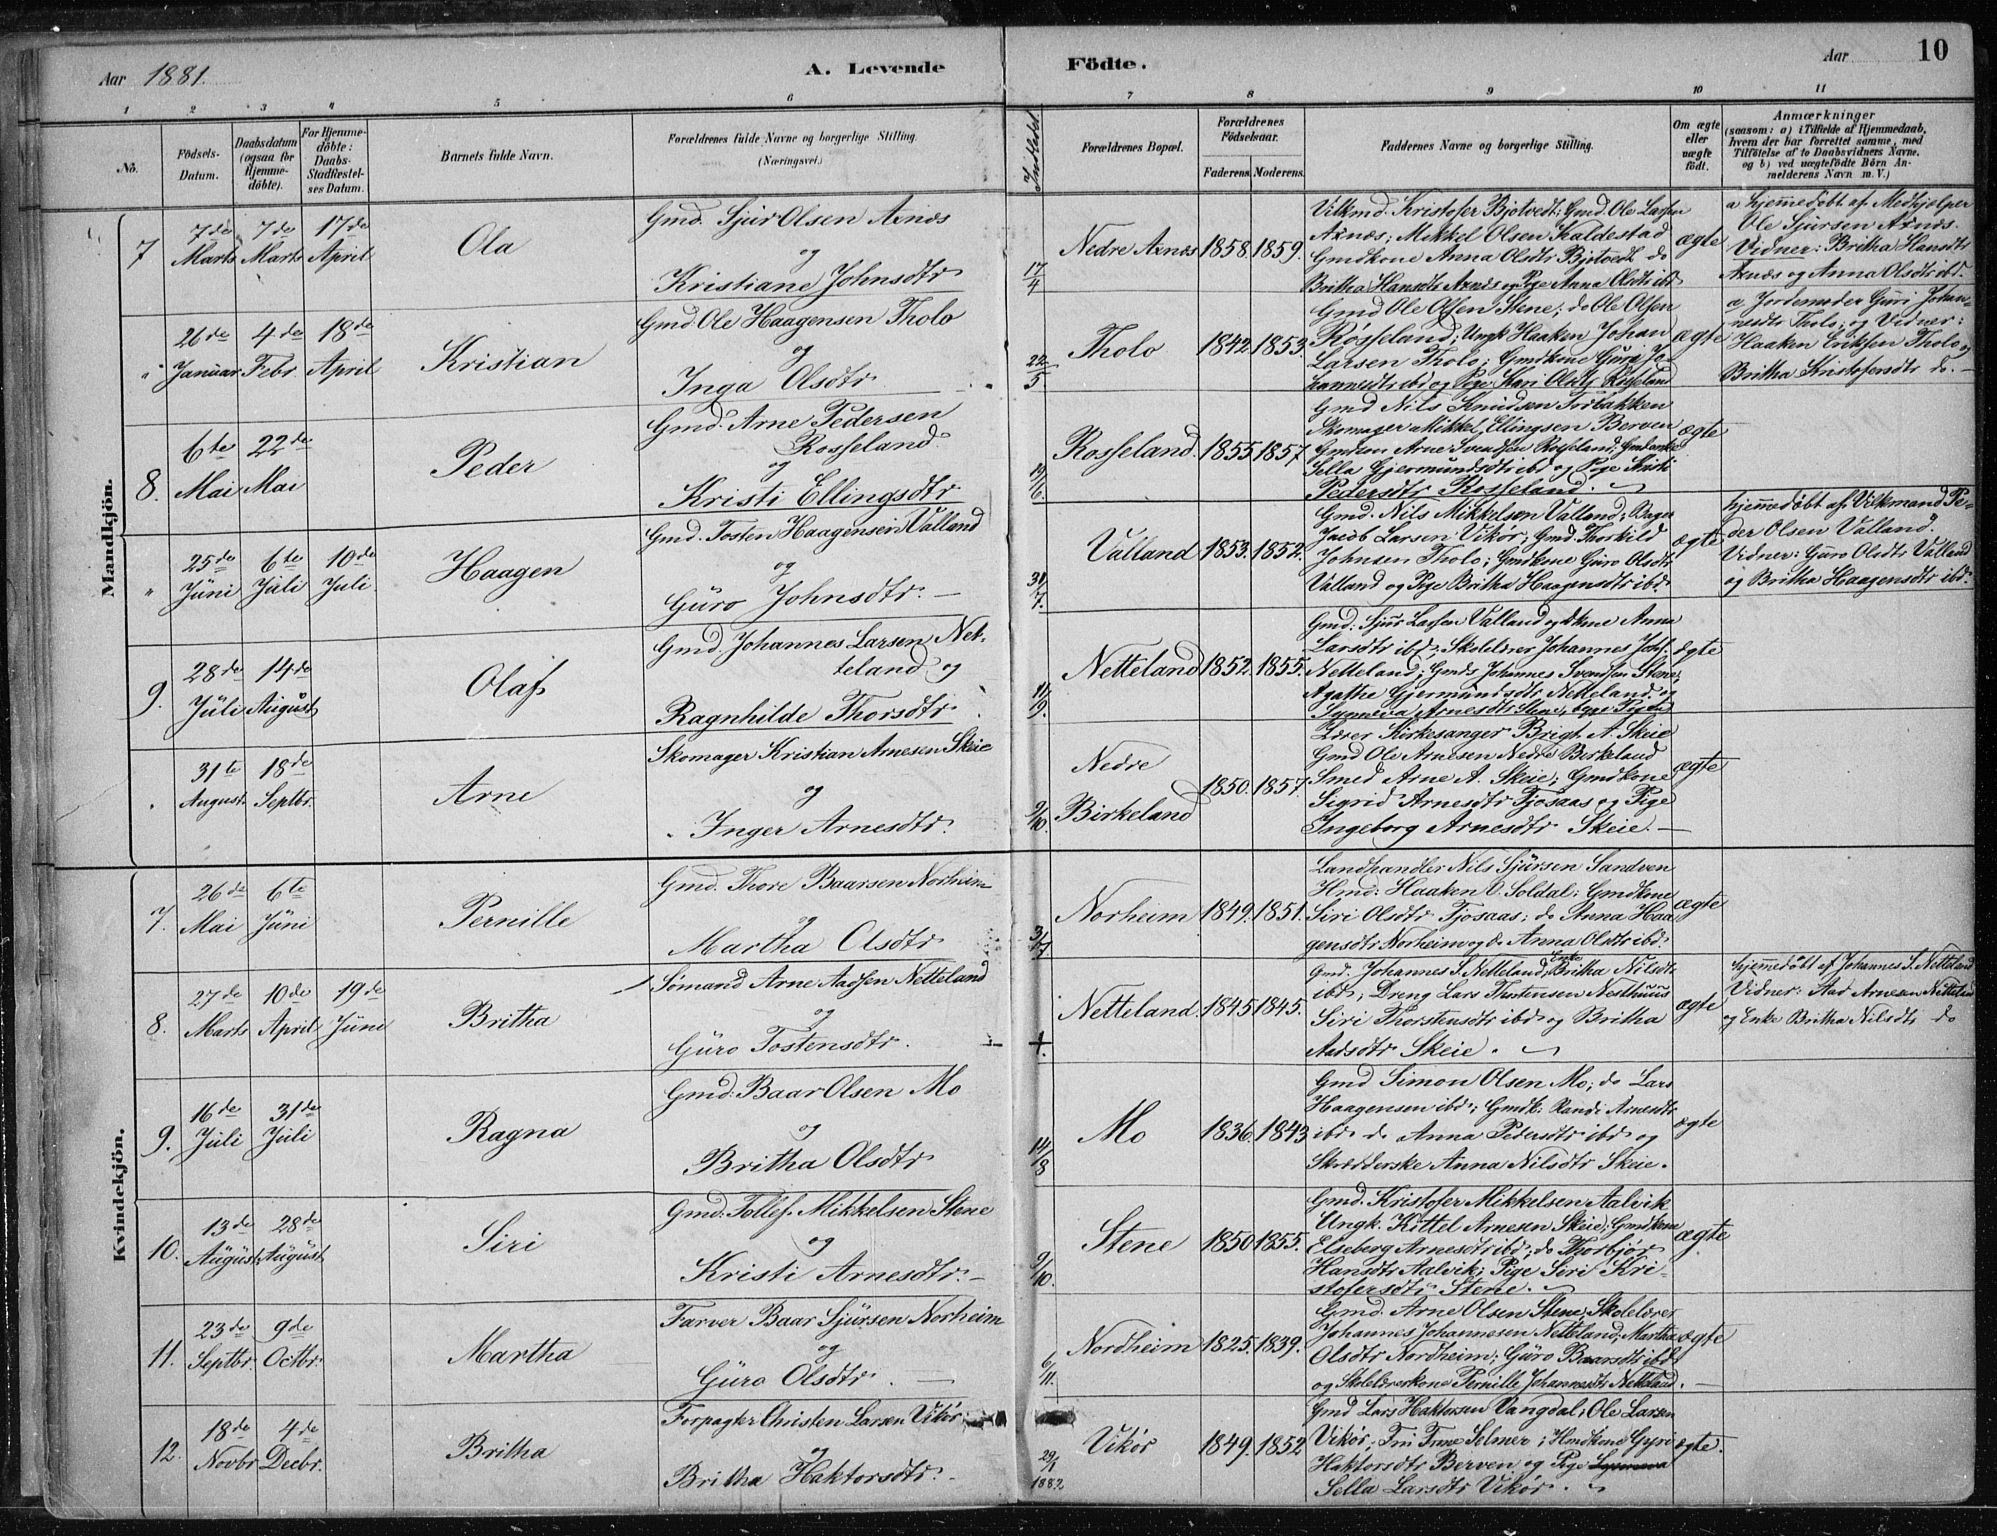 Aar 1881.
A. Levende Födte.
Aar
10
1 2 3 4 5 6 7 8 9 10 11
No.
Födsels-Datum.
Daabsdatum (ogsaa for Hjemme-döbte).
For Hjemme-döbte: Daabs-Stadfæstel-ses Datum.
Barnets fulde Navn.
Forældrenes fulde Navne og borgerlige Stilling.
(Næringsvei.)
Indledet.
Forældrenes Bopæl.
Forældrenes Födselsaar.
Faderens. Moderens.
Faddernes Navne og borgerlige Stilling.
Om ægte eller uægte födt.
Anmærkninger
(saasom: a) i Tilfælde af Hjemmedaab,
hvem der har forrettet samme, med
Tilföielse af to Daabsvidners Navne.
og b) ved uægtefödte Börn An-
melderens Navn m. V.)
Mandkjön.
7
7de Marts
7de Marts
17de April
Ola
Gmd. Sjur Olsen Axnæs
og
Kristiane Johnsdtr
17/4
Nedre Axnæs
1858.
1859.
Vilkmd. Kristofer Bjotvedt; Gmd. Ole Larsen
Axnæs; Mikkel Olsen Kaldestad
Gmdkone Anna Olsdtr Bjotvedt do
Britha Hansdtr Axnæs og Pige Anna Olsdtr ibd
ægte
a hjemmedöbt af Medhjælper
Ole Sjursen Axnæs.
Vidner: Britha Hansdtr
Axnæs og Anna Olsdtr ibd.
"
26de Januar
4de Febr
18de April
Kristian
Gmd. Ole Haagensen Tholo
og
Inga Olsdtr
22/5
Tholo
1842.
1853.
Gmd Ole Olsen Stene; do Ole Olsen
Rosseland; Ungk Haaken Johan
Larsen Tholo; Gmdkone Guri Jo-
hannesdtr ibd og Pige Kari Olsdtr Rosseland
ægte
a, Jordemoder Guri Johan-
nesdtr Tholo; og Vidner:
Haaken Eriksen Tholo og
Britha Kristofersdtr do.
8.
6te Mai
22de Mai
Peder
Gmd. Arne Pedersen
Rosseland
og
Kristi Ellingsdtr
19/6
Rosseland.
1855
1857
Gmd Nils Knudsen Torbakken
Skomager Mikkel Ellingsen Berven
Gmdsön Arne Svendsen Rosseland; Gmdenke
Sella Gjermundsdtr ibd og Pige Kristi
Pedersdtr Rosseland.
ægte
"
25de Juni
6te Juli
10de Juli
Haagen
Gmd. Tosten Haagensen Valland
og
Guro Johnsdtr.
31/7.
Valland
1853.
1852.
Gmd. Nils Mikkelsen Valland; Bager
Jacob Larsen Vikör; Gmd. Thorkild
Johnsen Tholo; Gmdkone Guro Olsdtr
Valland og Pige Britha Haagensdtr ibd.
ægte
hjemmedöbt af Vilkmand Pe-
der Olsen Valland.
Vidner: Guro Olsdtr Valland
og Britha Haagensdtr ibd.
9.
28de Juli
14de August
Olaf
Gmd. Johannes Larsen Net-
teland og
Ragnhilde Thorsdtr
11/9.
Netteland
1852.
1855.
Gmd: Sjur Larsen Valland og Kone Anna
Larsdtr ibd; Skolelærer Johannes Johs.
Netteland; Gmds Johannes Svendsen Stene,
Agathe Gjermundsdtr Netteland og
Synneva Arnesdtr Stene, begge Piger
ægte
"
31te August.
18de Septbr.
Arne
Skomager Kristian Arnesen Skeie
og
Inger Arnesdtr.
9/10.
Nedre
Birkeland
1850.
1857.
Lærer Kirkesanger Brigt A. Skeie
Gmd Ole Arnesen Nedre Birkeland
Smed Arne A. Skeie; Gmdkone
Sigrid Arnesdtr Tjosaas og Pige
Ingeborg Arnesdtr Skeie.
ægte
Kvindekjön.
7.
26de Mai
6te Juni
Pernille
Gmd. Thore Baarsen Norheim
og
Martha Olsdtr
3/7
Norheim
1849.
1851.
Landhandler Nils Sjursen Sandven
Hmd: Haaken O. Soldal; Gmdkone
Siri Olsdtr Tjosaas; do Anna Haa-
gensdtr Norheim og do Anna Olsdtr ibd.
ægte
8.
27de Marts
10de April
19de Juni
Britha
Sömand Arne Aadsen Netteland
og
Guro Tostensdtr.
+.
Netteland.
1845
1845.
Gmd. Johannes S. Netteland, Enke Britha Nilsdtr
ibd; Dreng Lars Thorstensen Nesthuus
Siri Thorstensdtr ibd og Britha
Aadsdtr Skeie.
ægte
hjemmedöbt af Johannes S. Netteland
Vidner: Aad Arnesen Netteland
og Enke Britha Nilsdtr do
9.
16de Juli
31de Juli
Ragna
Gmd. Baar Olsen Mo
og
Britha Olsdtr
14/8
Mo
1836.
1843
Gmd Simon Olsen Mo; do Lars
Haagensen ibd; Gmdk. Randi Arnesdtr
ibd do Anna Pedersdtr ibd og
Skrædderske Anna Nilsdtr Skeie.
ægte
10.
13de August
28de August
Siri
Gmd. Tollef. Mikkelsen Stene
og
Kristi Arnesdtr.
9/10.
Stene
1850
1855.
Gmd. Kristofer Mikkelsen Aalvik
Ungk. Kittel Arnesen Skeie; Gmdkone
Elseberg Arnesdtr ibd; do Thorbjör
Hansdtr Aalvik; Pige Siri Kri-
stofersdtr Stene.
ægte
11.
23de Septbr.
9de Octbr.
Martha
Farver Baar Sjursen Norheim
og
Guro Olsdtr.
6/11.
Nordheim
1825.
1839.
Gmd. Arne Olsen Stene, Skolelærer
Johannes Johannesen Netteland; Martha
Olsdtr Nordheim; Guro Baarsdtr ibd
og Skolelærerkone Pernille Johannesdtr Netteland.
ægte
12.
18de Novbr
4de Decbr.
Britha
Forpagter Christen Larsen Vikör
og
Britha Haktorsdtr.
29/1 1882
Vikör
1849.
1852
Gmd Lars Haktorsen Vangdal; Ole Larsen
Vikör; Fru Selmer; Hmdkone Gyri
Haktorsdtr Berven og Pige
Sella Larsdtr Vikör.
ægte.